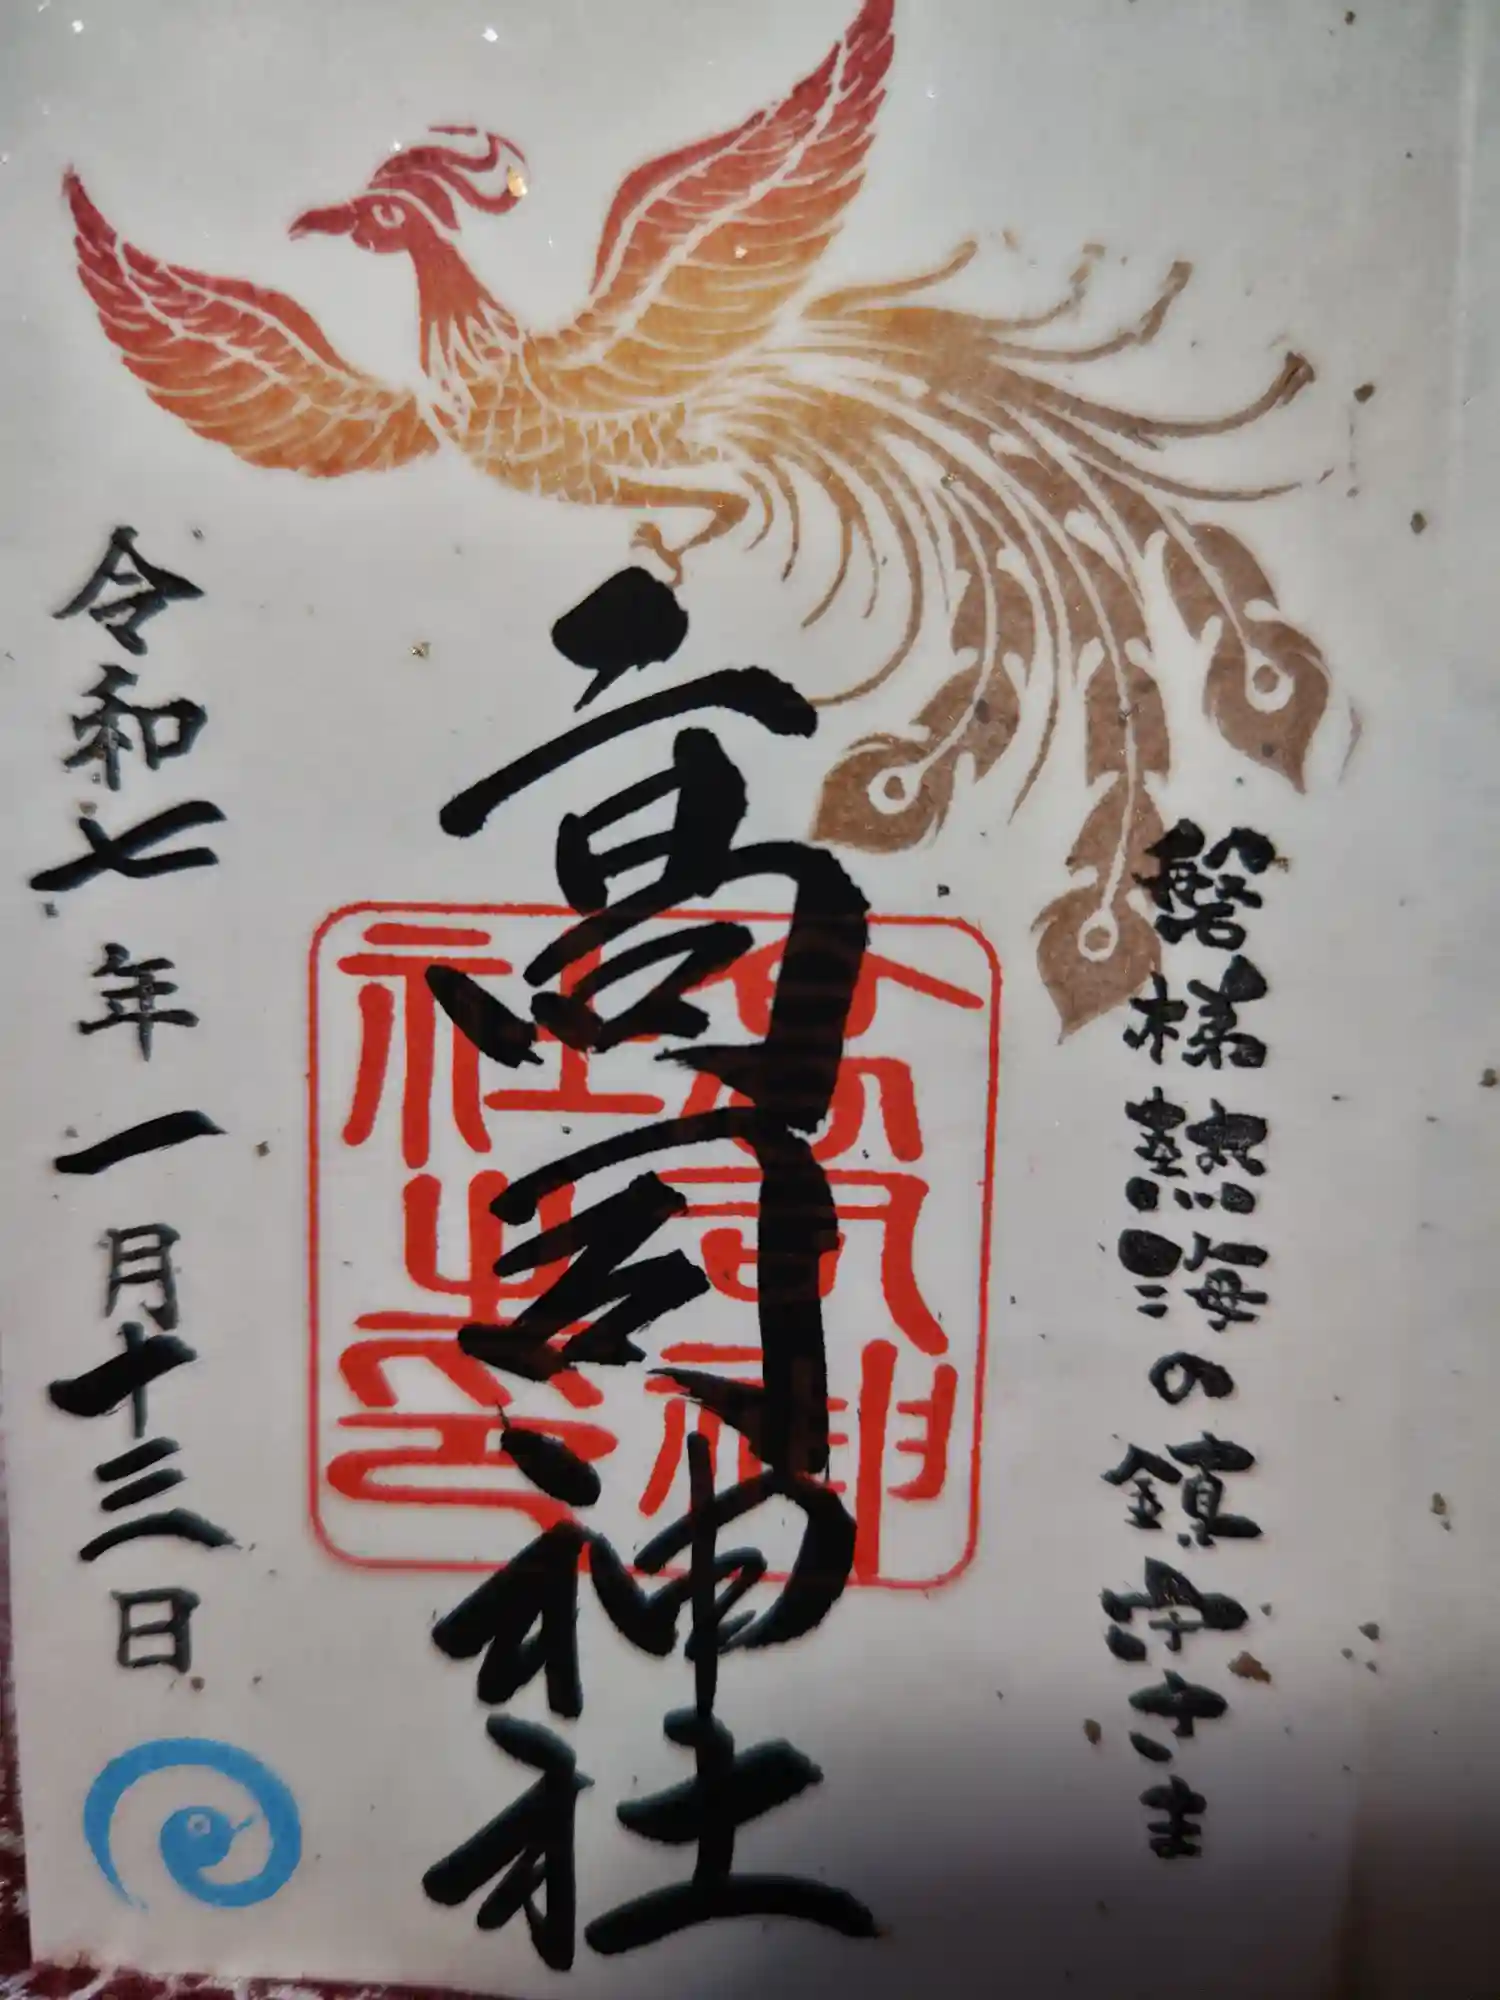 磐梯熱海の鎮守さま
高司神社
高司神
社之印
令和七年一月十三日